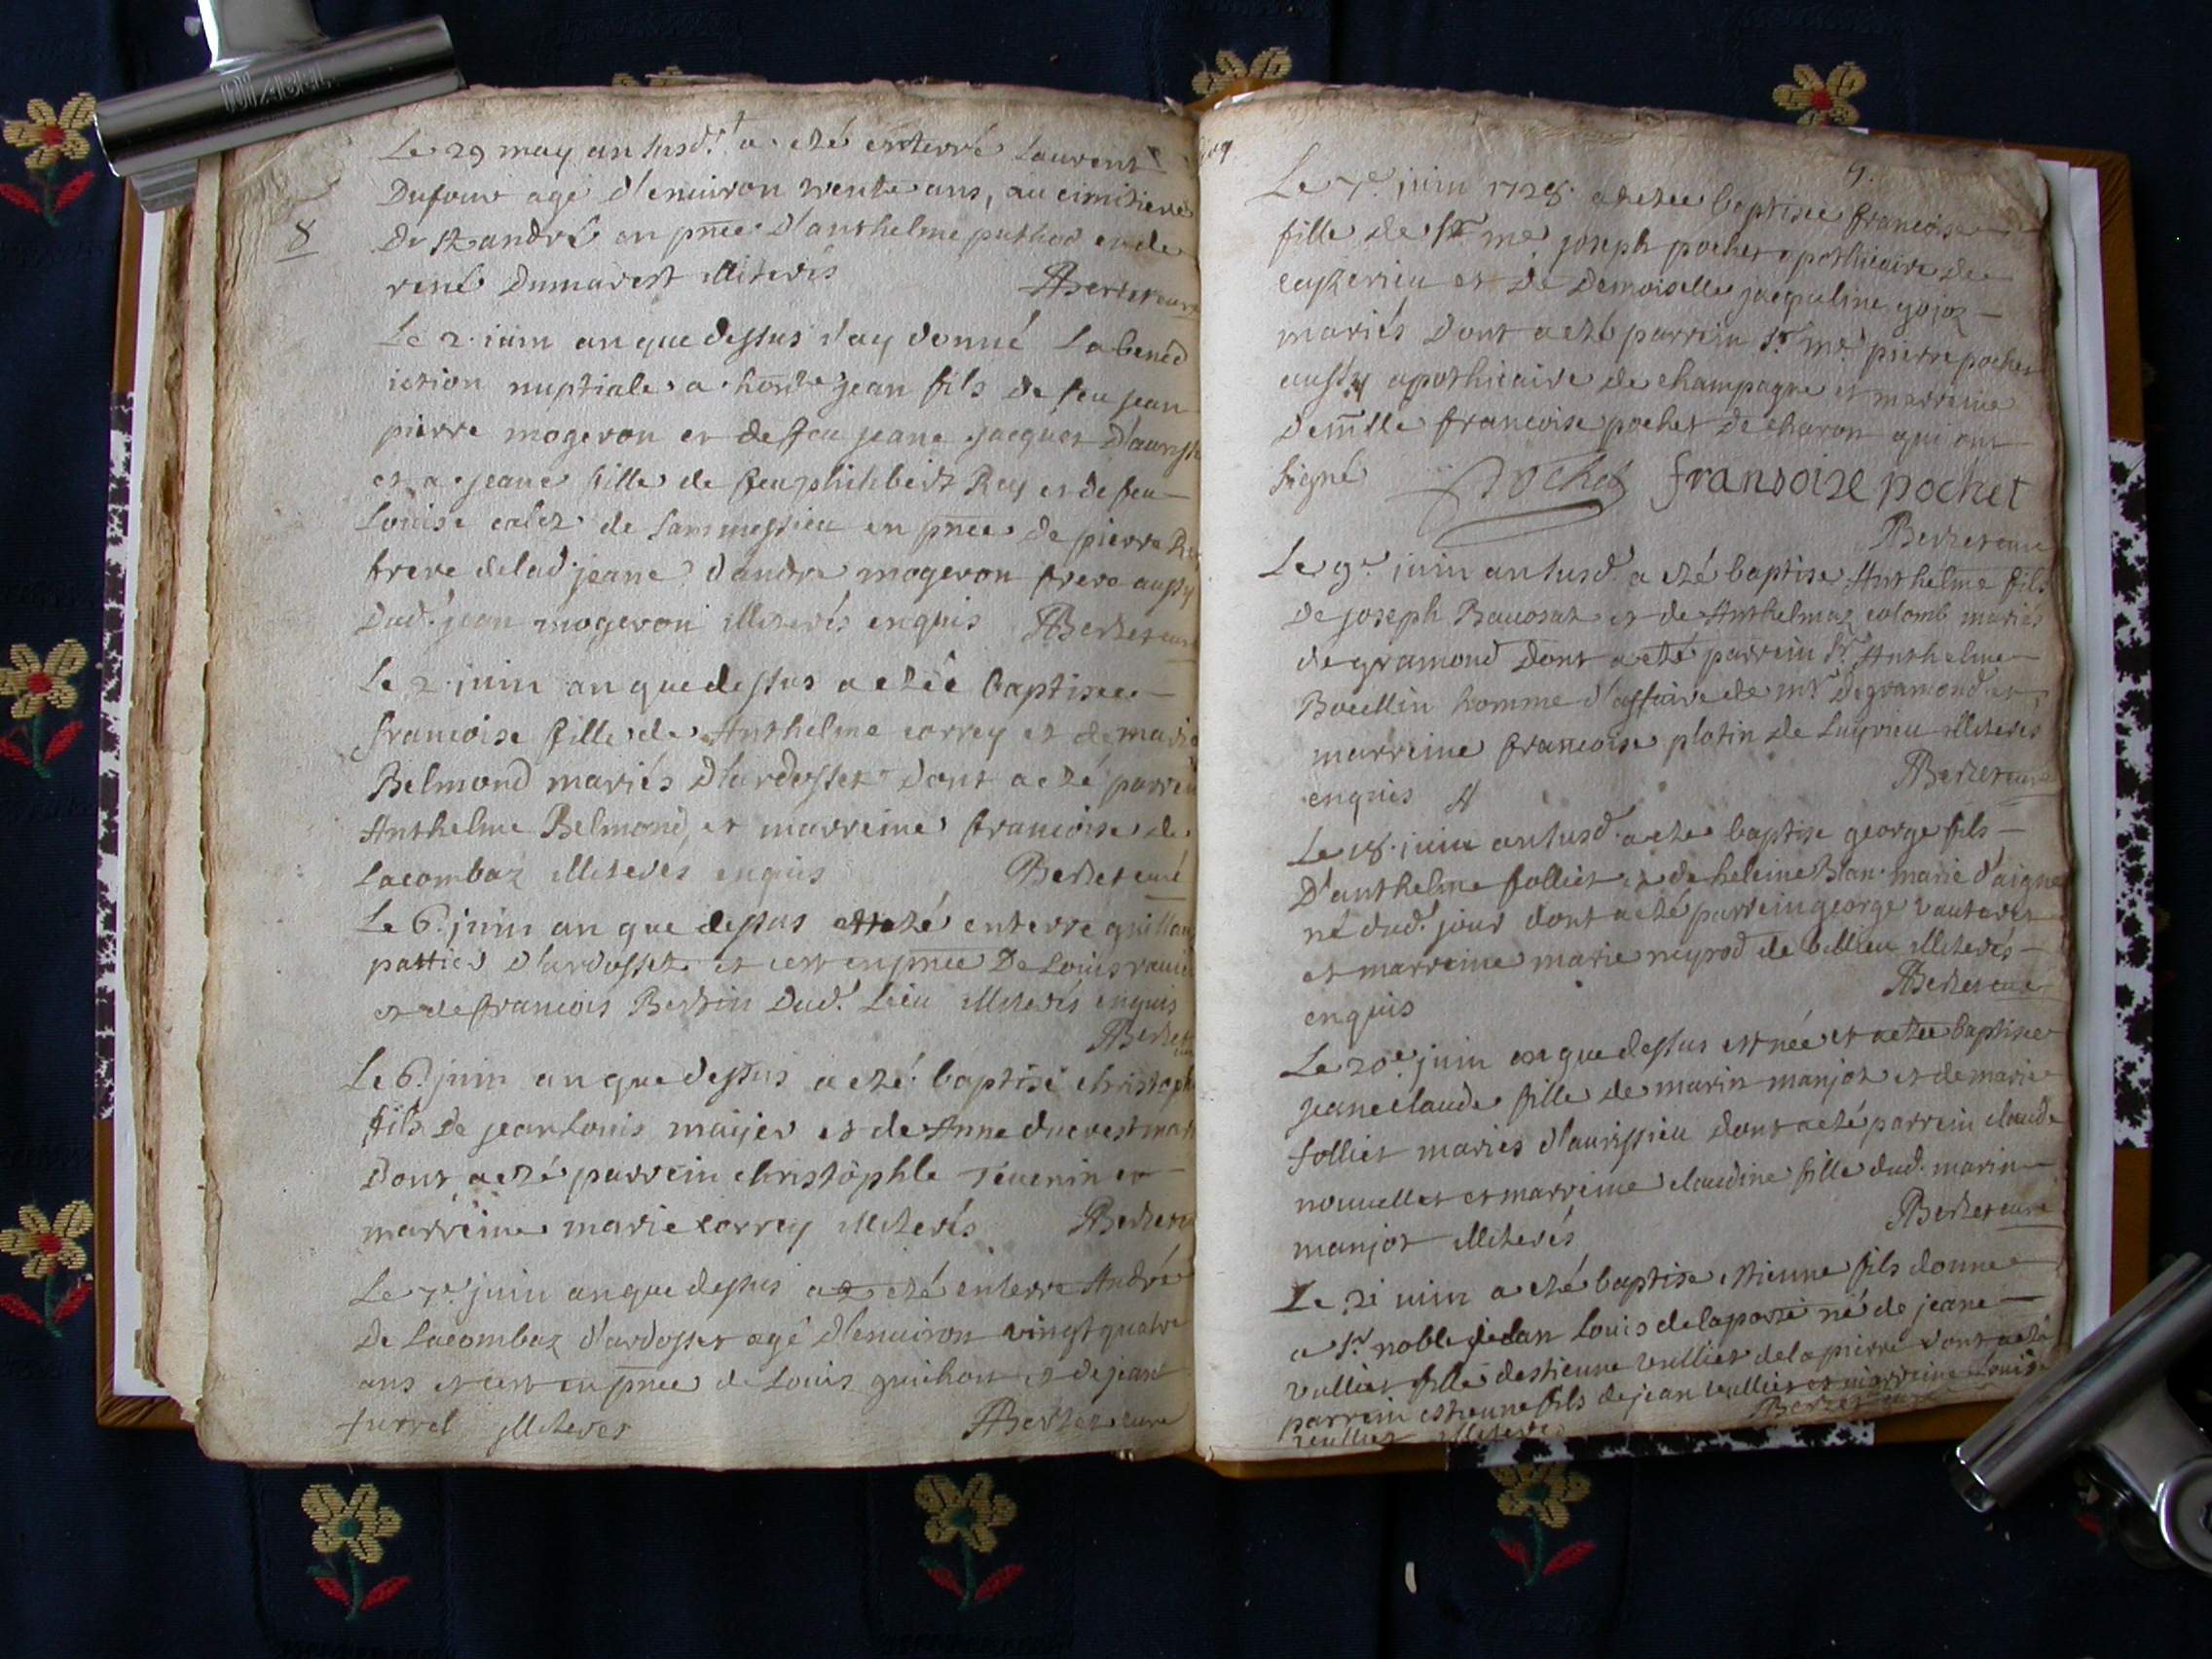 DIABEL
Le 29 may an susd.t a eté enterré Laurent
Dufour agé d'environ trente ans, au cimitiere
De st andré en pnce d'anthelme puthod et de
rené Dumarest illiterés ABertet curé
8
Le 2. juin an que dessus j'ay donné La bened
iction nuptiale a honte jean fils de feu jean
pierre mogeron et de feu jeane jacques
et a jeane fille de feu philibert Rey et de feu
Louise calet de sammessieu en pnce de pierre Rey
frere de lad. jeane d'andre mogeron frere aussy
Dud. jean mogeron illiterés enquis ABertet curé
Le 2. juin an que dessus a etée baptisee
francoise fille de Anthelme correy et de marie
Belmond mariés D'ardosset Dont a eté parrein
Anthelme Belmond, et marreine francoise de
Lacombaz illiteres enquis Bertet curé
Le 6. juin an que dessus a eté enterre
D'ardosset et cest en pnce De Louis
et de francois Bertin Dud. Lieu illiterés enquis
ABertet
Le 6. juin an que dessus a eté baptisé christoph
fils De jean Louis maijer et de Anne ducrest mar
Dont a eté parrein christophle Tévenin et
marreine marie correy illiterés ABertet
Le 7e juin an que dessus a eté enterre André
De Lacombaz d'ardosset agé D'environ vingt quatre
ans et cest en pnce de Louis guichon et de jean
furrel illiteres ABertet cure
9.
Le 7e juin 1728. a etee baptisée francoise
fille de sr me joseph pochet apothicaire de
et de Demoiselle jacqueline gojoz
mariés Dont a eté parrein sr me pierre pochet
aussy apothicaire de champagne et marreine
Demlle francoise pochet de charon qui ont
signé Pochet fransoise pochet
Bertet curé
Le 9e juin an susd. a eté baptise Anthelme fils
De joseph Baucosat et de Anthelmaz colomb mariés
de gramond Dont a eté parrein sr Anthelme
Bouellin homme d'affaire de mr Degramond et
marreine francoise plotin de Luyrieu illiterés
enquis ABertet curé
Le 18. juin an susd. a eté baptise george fils
D'anthelme folliet et de heleine Blan. marié d'aigne
né dud. jour dont a eté parrein george
et marreine marie neyrod de billieu illiterés
enquis ABertet curé
Le 20e juin an que dessus est née et a etee baptisee
jeane claude fille de marin manjot et de marie
folliet mariés d'aurissieu Dont a eté parrein claude
nouvellet et marreine claudine fille dud. marin
manjot illiterés ABertet curé
Le 21 juin a eté baptise estienne fils donne
a sr noble Louis de laporte né de jeane
vulliet fille destienne vulliet de la pierre dont a eté
parrein estienne fils de jean vulliet et marreine Louise
vulliet illiteres ABertet curé